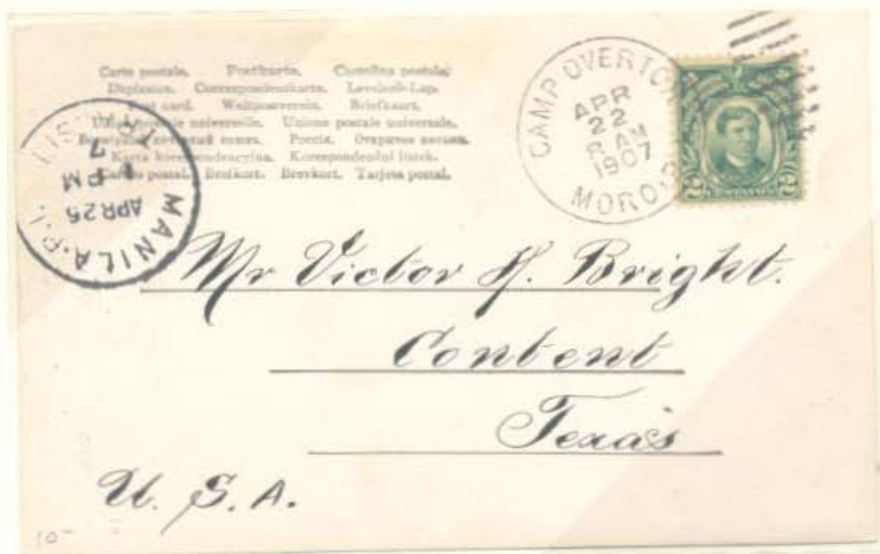 Carte postale. Postkarte. Cartolina postale.
Dopisnice. Correspondenzkarte. Levelező-Lap.
card. Weltpostverein. Briefkaart.
postale universelle. Unione postale universale.
Россія.
Karta korespondencyjna. Korespondenční lístek.
postal. Brefkort. Brevkort. Tarjeta postal.
CAMP OVERTO
APR
22
8 AM
1907
MORO, P.
2 CENTAVOS 2
TRANSIT
7
1 PM
APR 25
MANILA. P. I.
Mr Victor H. Bright.
Content
Texas
U. S. A.
10-